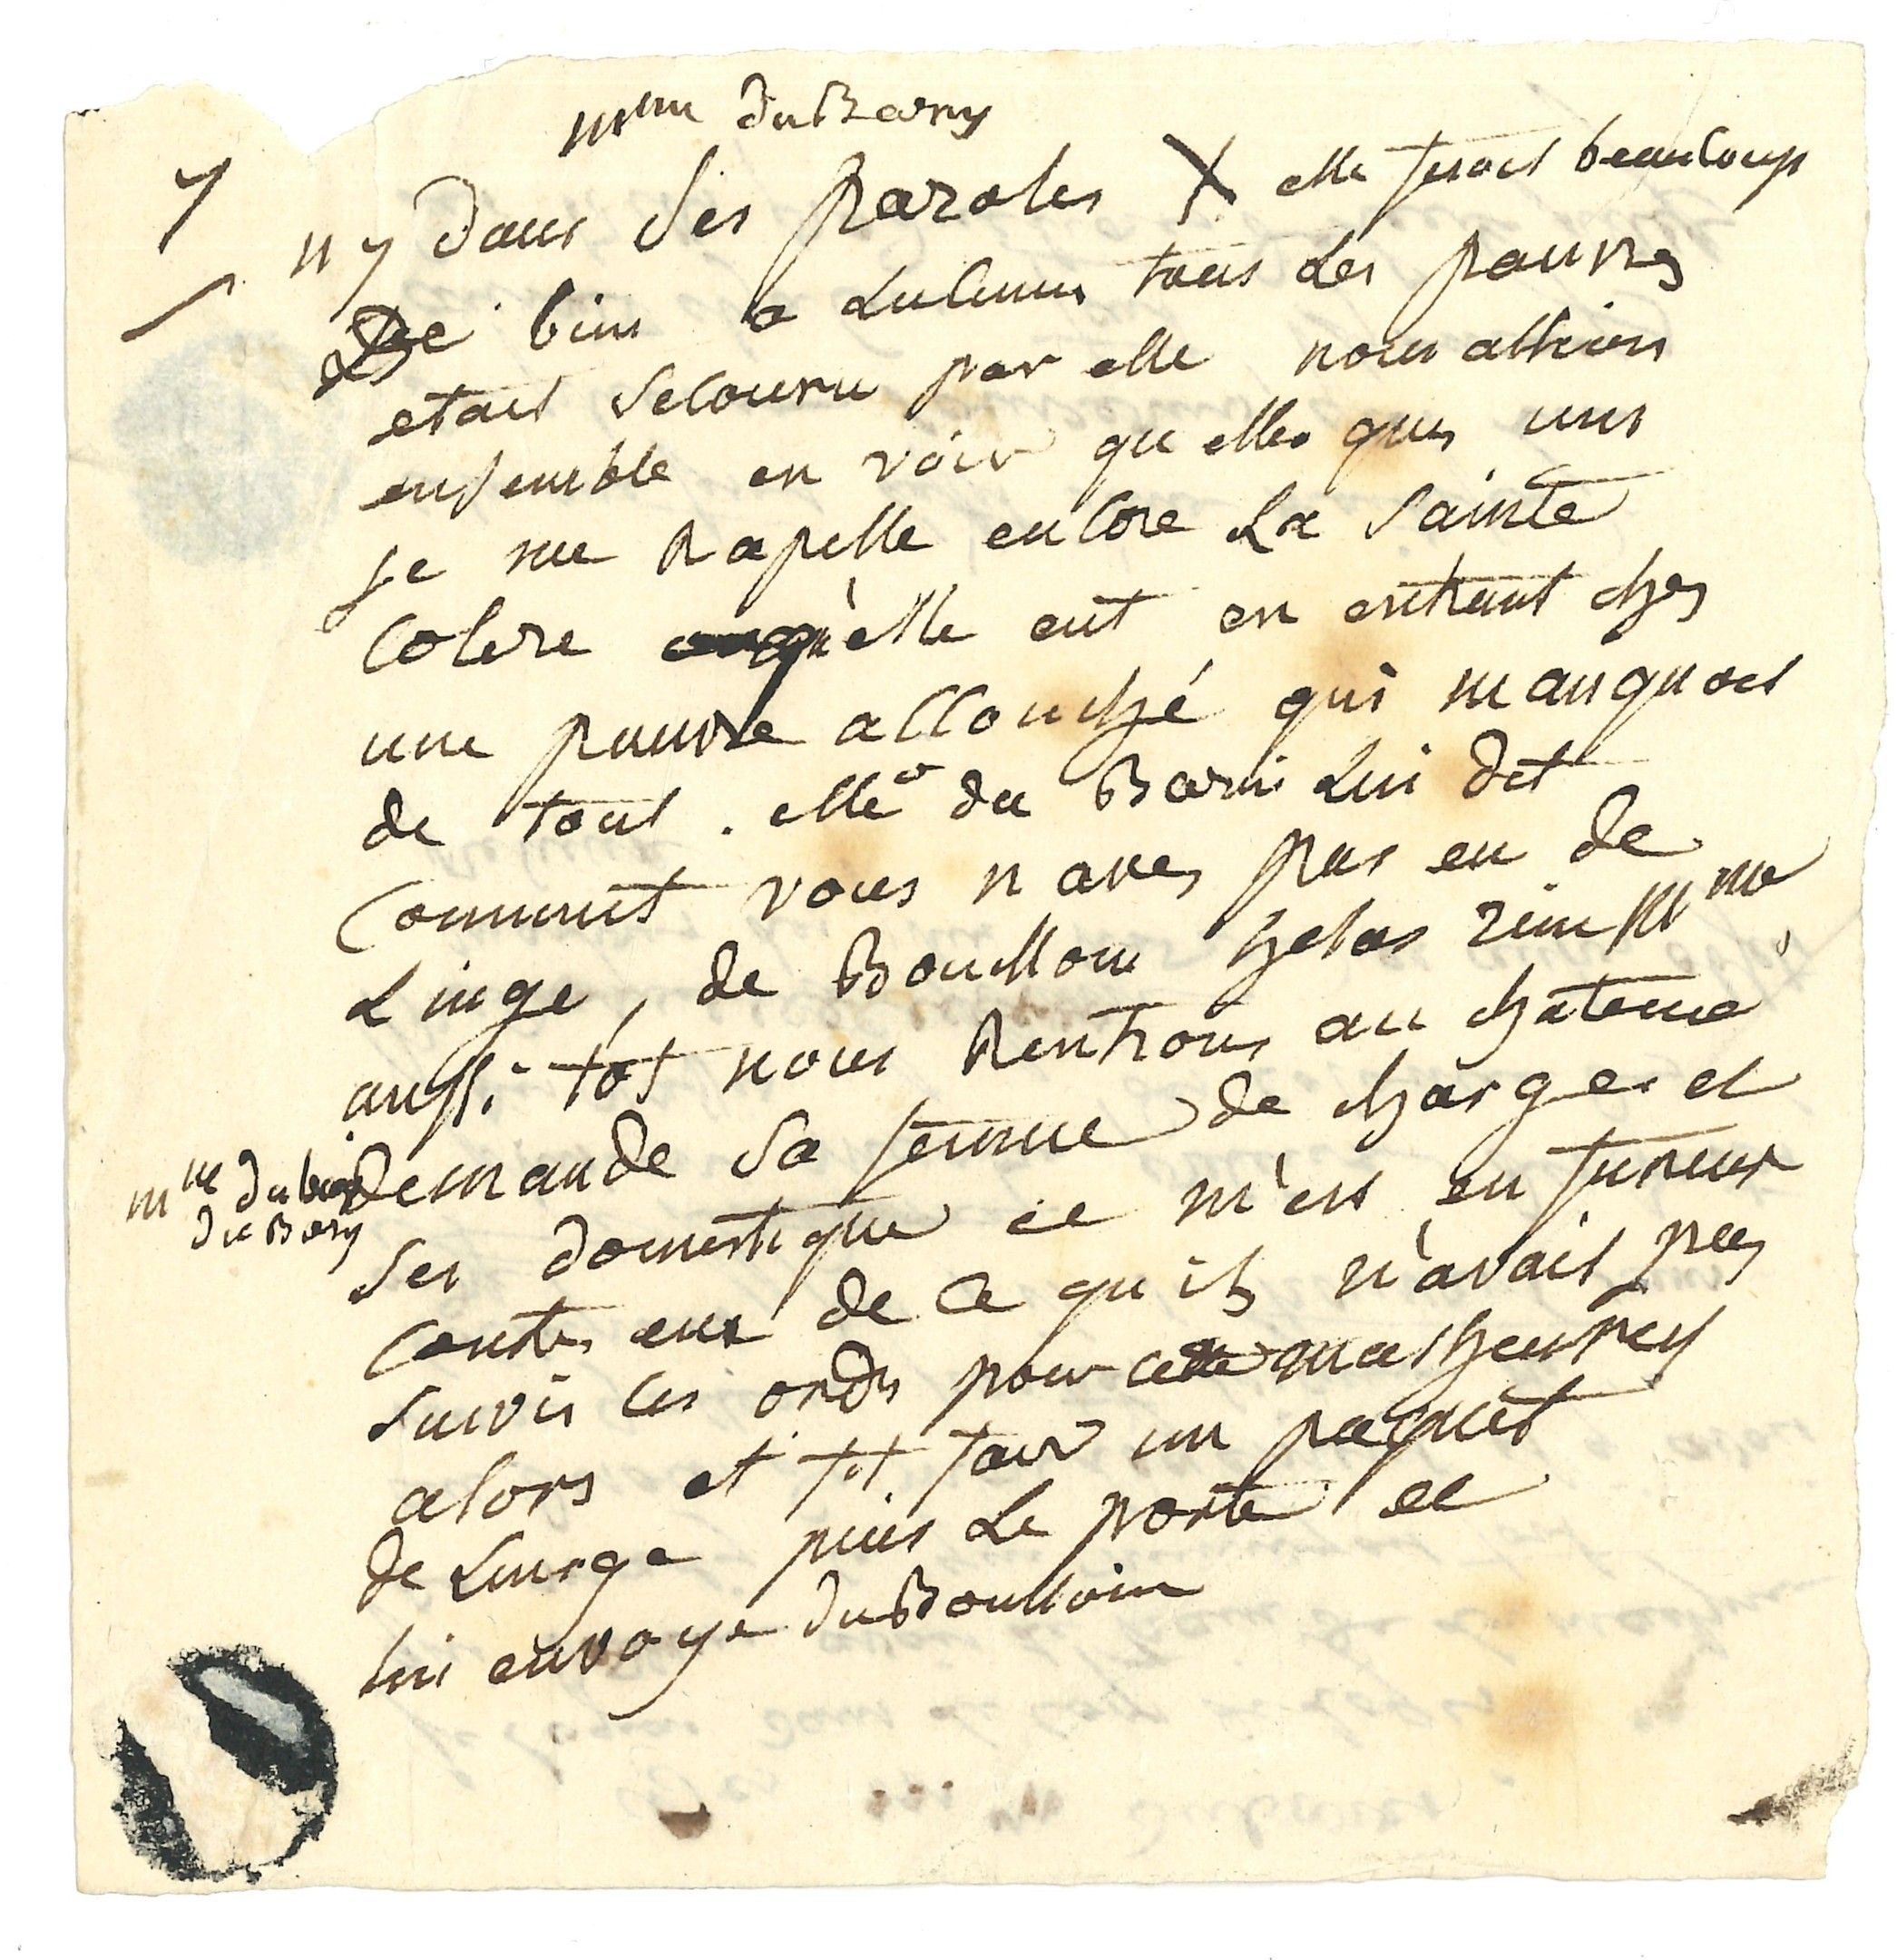 mme duBarry
ny dans ses paroles X elle fesoit beaucoup
De bien a Lulienne tous Les pauvres
etait secouru par elle nous allions
ensemble en voir quelles ques uns
je me Rapelle encore La sainte
Colere qu'elle eut en entrant ches
une pauvre accouché qui manquoit
de tout. elle du Barri Lui dit
Comment vous n aves pas eu de
Linge, de Bouillon helas rien Mme
aussi tot nous Rentrons au chateau
mme du bary demande sa femme de charge et
du Bary
ses domestique ce m'est en fureur
contre eux de ce qu ils n'avait pas
suivis ces ordres pour cette malheureus
alors et tot fair un paquet
de Linge puis Le porte et
lui envoye du Bouilloin